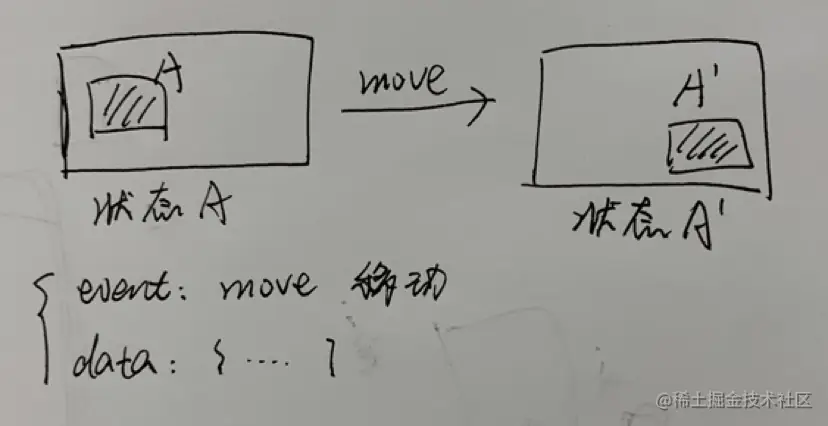 A
move
A'
状态A
状态A'
event: move 移动
data: { .... }
@稀土掘金技术社区